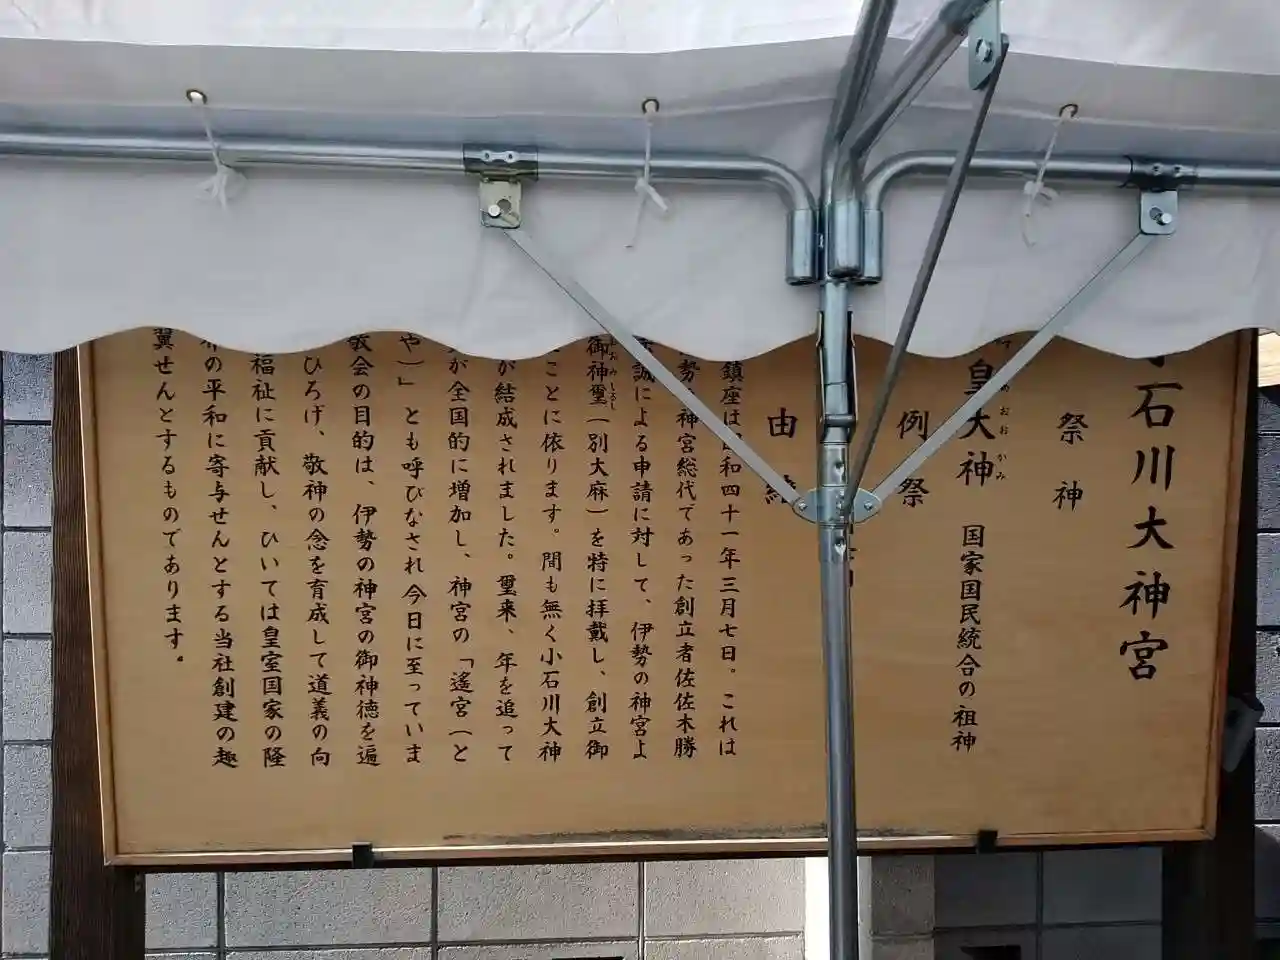 石川大神宮
祭神
皇大神 国家国民統合の祖神
おおかみ
例祭
由緒
鎮座は 和四十一年三月七日。これは
勢 神宮総代であった創立者佐佐木勝
誠による申請に対して、伊勢の神宮よ
御神璽(別大麻)を特に拝戴し、創立御
おみしるし
ことに依ります。間も無く小石川大神
が結成されました。爾来、年を追って
が全国的に増加し、神宮の「遙宮(と
や)」とも呼びなされ今日に至っていま
敬会の目的は、伊勢の神宮の御神徳を遍
ひろげ、敬神の念を育成して道義の向
福祉に貢献し、ひいては皇室国家の隆
の平和に寄与せんとする当社創建の趣
翼せんとするものであります。